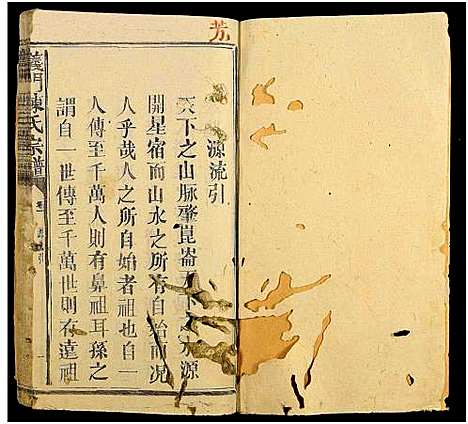 芳
源流引
天下之山脉肇崑崙天下之水源
開星宿而山水之所自始而況
人乎哉人之所自始者祖也自一
人傳至千萬人則有鼻祖耳孫之
謂自一世傳至千萬世則有遠祖
義門陳氏宗譜